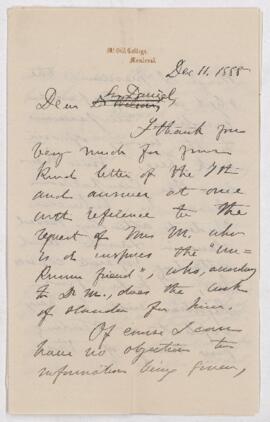 McGill College,
Montreal.
Dec 11. 1888
Sir Daniel,
Dear Dr Wilson
I thank you
very much for your
kind letter of the 7th
and answer at once
with reference to the
request of Mrs M. who
is or inspires the "un-
known friend", who, according
to Dr M., does the work
of slander for him.
Of course I can
have no objection to
information being given,